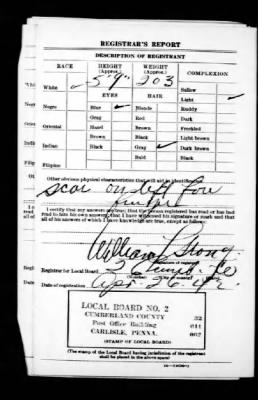 REGISTRAR'S REPORT
DESCRIPTION OF REGISTRANT
RACE HEIGHT (Approx.) WEIGHT (Approx.) COMPLEXION
5'9" 203
White ✓ Sallow
EYES HAIR Light ✓
Negro Blue ✓ Blonde Ruddy
Gray Red Dark
Oriental Hazel Brown Freckled
Brown Black Light brown
Indian Black Gray ✓ Dark brown
Bald Black
Filipino
Other obvious physical characteristics that will aid in identification
scar on left fore
finger
I certify that my answers are true; that the person registered has read or has had
read to him his own answers; that I have witnessed his signature or mark and that
all of his answers of which I have knowledge are true, except as follows:
William
Registrar for Local Board 2
Date of registration Apr. 26
LOCAL BOARD NO. 2
CUMBERLAND COUNTY 32
Post Office Building 041
CARLISLE, PENNA. 002
(STAMP OF LOCAL BOARD)
(The stamp of the Local Board having jurisdiction of the registrant
shall be placed in the above space)